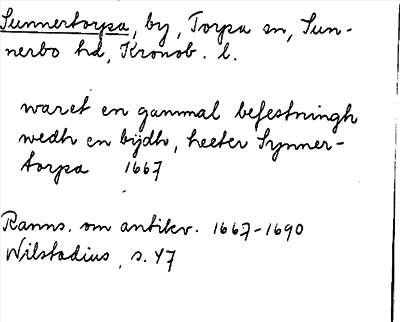 Sunnertorpa, by, Torpa sn, Sun-
nerbo hd, Kronob. l.
waret en gammal befestningh
wedh en bÿdh, heeter Synner-
torpa 1667
Ranns. om antikv. 1667-1690
Wilstadius, s. 47